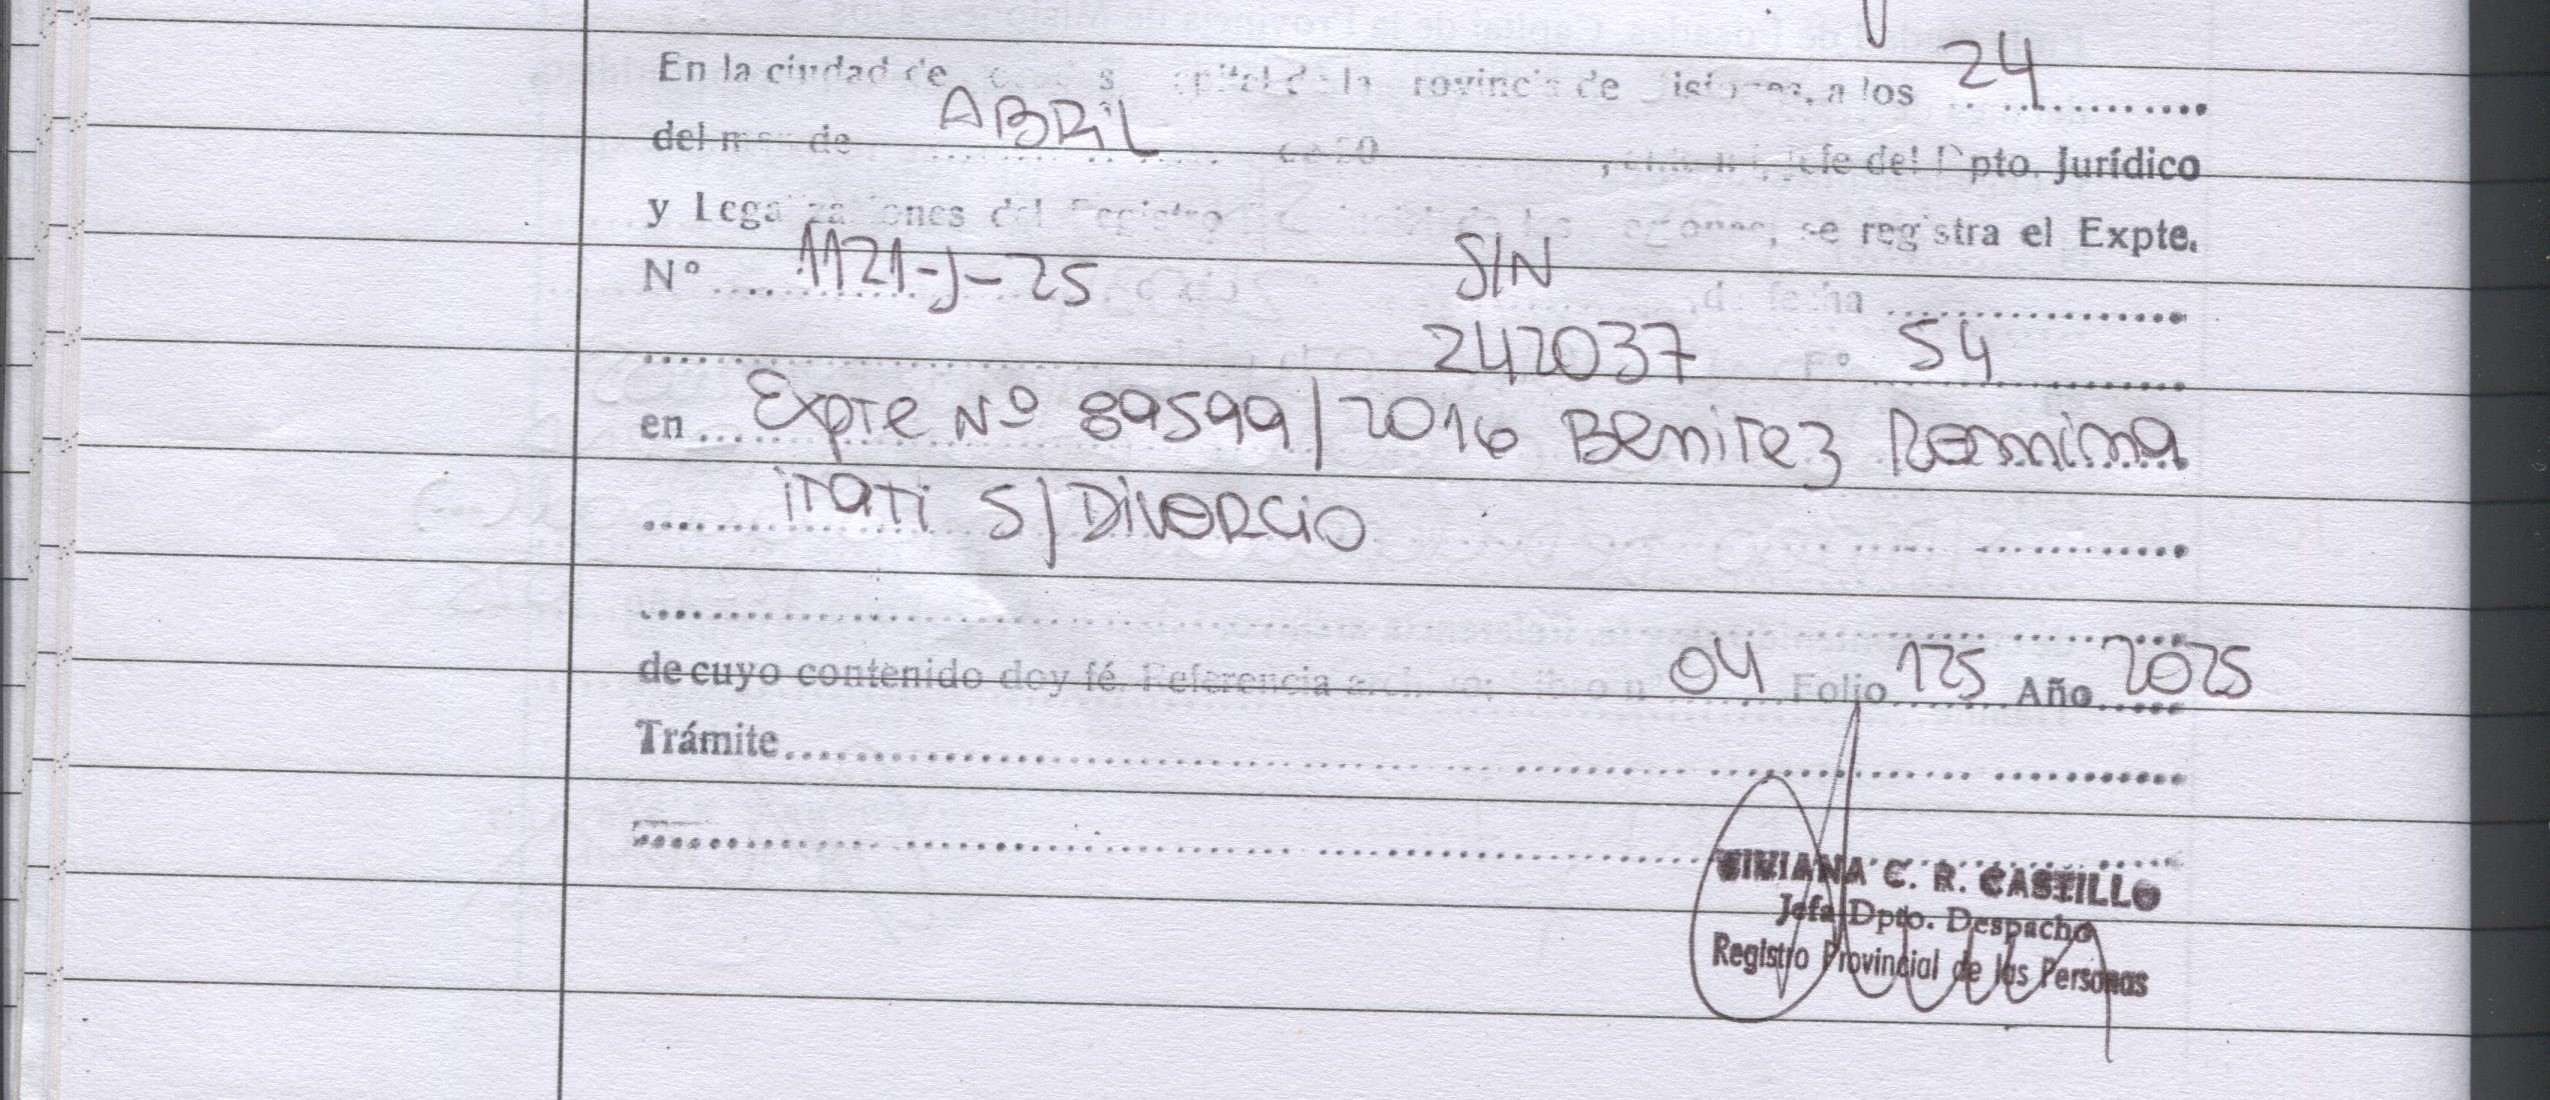 En la ciudad de la de a los 24
del de ABRIL de 20 Jefe del Dpto. Jurídico
y Legalizaciones del Registro se registra el Expte.
Nº 1121-J-25 S/N de fecha
242037 Fº 54
en Expte Nº 89599/2016 Benitez Romina
itati S/Divorcio
de cuyo contenido doy fé. Referencia 04 Folio 125 Año 2025
Trámite
VIVIANA C. R. CASTILLO
Jefa Dpto. Despacho
Registro Provincial de las Personas